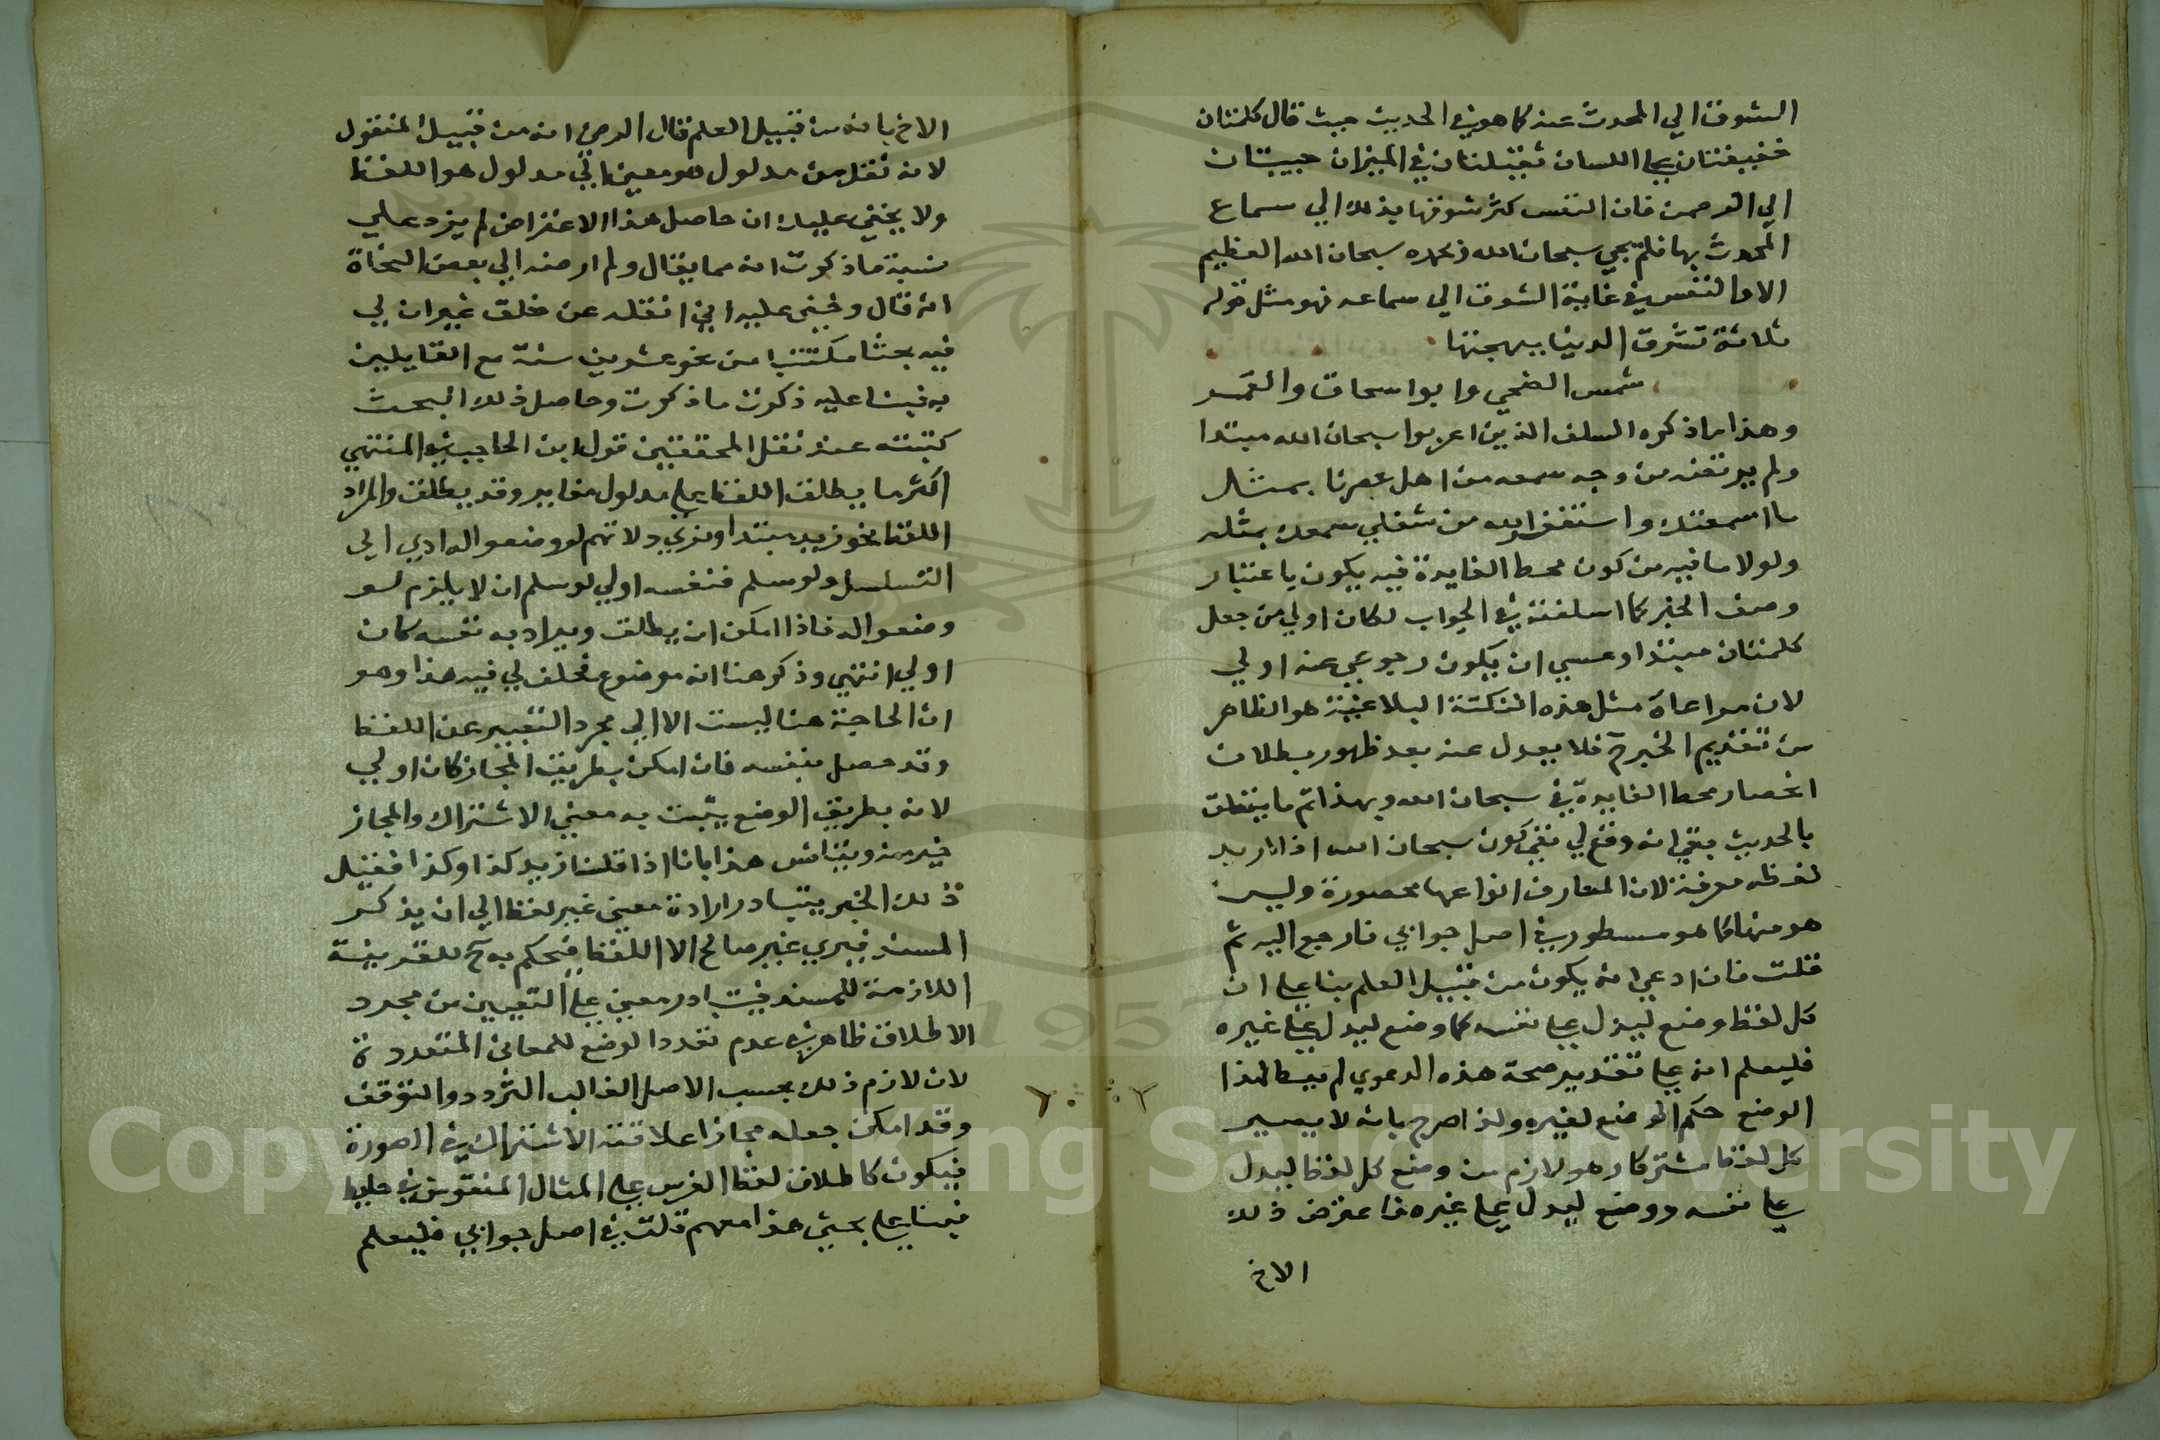 الشوق الي المحدث عنه كما هو في الحديث حيث قال كلمتان
خفيفتان على اللسان ثقيلتان في الميزان حبيبتان
الي الرحمن فان النفس كثر شوقها بذلك الي سماع
المحدث بها فلم يجي سبحان الله وبحمده سبحان الله العظيم
الا والنفس في غاية الشوق الي سماعه فهو مثل قوله
ثلاثة تشرق الدنيا ببهجتها
شمس الضحي وابو اسحاق والقمر
وهذا ما ذكره السلف الذين اعربوا سبحان الله مبتدا
ولم يرتضه من وجه سمعه من اهل عصرنا بمثال
ما اسمعتك واستغفر الله من شغلي سمعك بمثله
ولولا ما فيه من كون محط الفايدة فيه يكون باعتبار
وصف الخبر كما اسلفته في الجواب لكان اولي من جعل
كلمتان مبتدا وعسي ان يكون رجوعي عنه اولي
لان مراعاة مثل هذه النكتة البلاغية هو الظاهر
من تقديم الخبر فلا يعدل عنه بعد ظهور بطلان
انحصار محط الفايدة في سبحان الله وبهذا تم ما يتعلق
بالحديث بقي انه وقع لي نفي كون سبحان الله اذا اريد
لفظه معرفة لان المعارف انواعها محصورة وليس
هو منها كما هو مسطور في اصل جوابي فارجع اليه ثم
قلت فان ادعي انه يكون من قبيل العلم بنا علي ان
كل لفظ وضع ليدل علي نفسه كما وضع ليدل علي غيره
فليعلم انه علي تقدير صحة هذه الدعوي لم يعط لهذا
الوضع حكم الوضع لغيره ولذا صرح بانه لا يصير
كل لفظ مشتركا وهو لازم من وضع كل لفظ ليدل
علي نفسه ووضع ليدل علي غيره فاعترض ذلك
الاخ
٢
الاخ بانه من قبيل العلم قال المدعي انه من قبيل المنقول
لانه نقل من مدلول هو معين الي مدلول هو اللفظ
ولا يخفي عليك ان حاصل هذا الاعتراض لم يزد علي
نسبة ما ذكرت انه مما يقال ولم ار منه الي بعض النحاة
انه قال وخفي عليه اني انقله عن خلق غير ان لي
فيه بحثا مكتتبا من نحو عشرين سنة مع القايلين
به فبنا عليه ذكرت ما ذكرت وحاصل ذلك البحث
كتبته عند نقل المحققين قول ابن الحاجب في المنتهي
اكثر ما يطلق اللفظ علي مدلول مغاير وقد يطلق والمراد
اللفظ نحو زيد مبتدا وزي د لانهم لو وضعوا له ادي الي
التسلسل ولو سلم فنفسه اولي لو سلم ان لا يلزم لو
وضعوا له فاذا امكن ان يطلق ويراد به نفسه كان
اولي انتهي وذكر هنا انه موضوع فخلف لي فيه هذا وهو
ان الحاجة هنا ليست الا الي مجرد التعبير عن اللفظ
وقد حصل بنفسه فان امكن بطريق المجاز كان اولي
لانه بطريق الوضع يثبت به معني الاشتراك والمجاز
خير منه ويقايس هذا بانا اذا قلنا زيد كذا وكذا فقيل
ذلك الخبر يتبادر ارادة معني غير لفظ الي ان يذكر
المسند فيري غير صالح الا اللفظ فيحكم به ح للقرينة
اللازمة للمسند فيتبادر معني علي التعيين من مجرد
الاطلاق ظاهر في عدم تعدد الوضع للمعاني المتعددة
لان لازم ذلك بحسب الاصل الغالب التردد والتوقف
وقد امكن جعله مجازا علاقته الاشتراك في الصورة
فيكون كاطلاق لفظ الفرس علي المثال المنقوش في حايط
فبنا علي بحثي هذا معهم قلت في اصل جوابي فليعلم
٢
Copyright © King Saud University
195